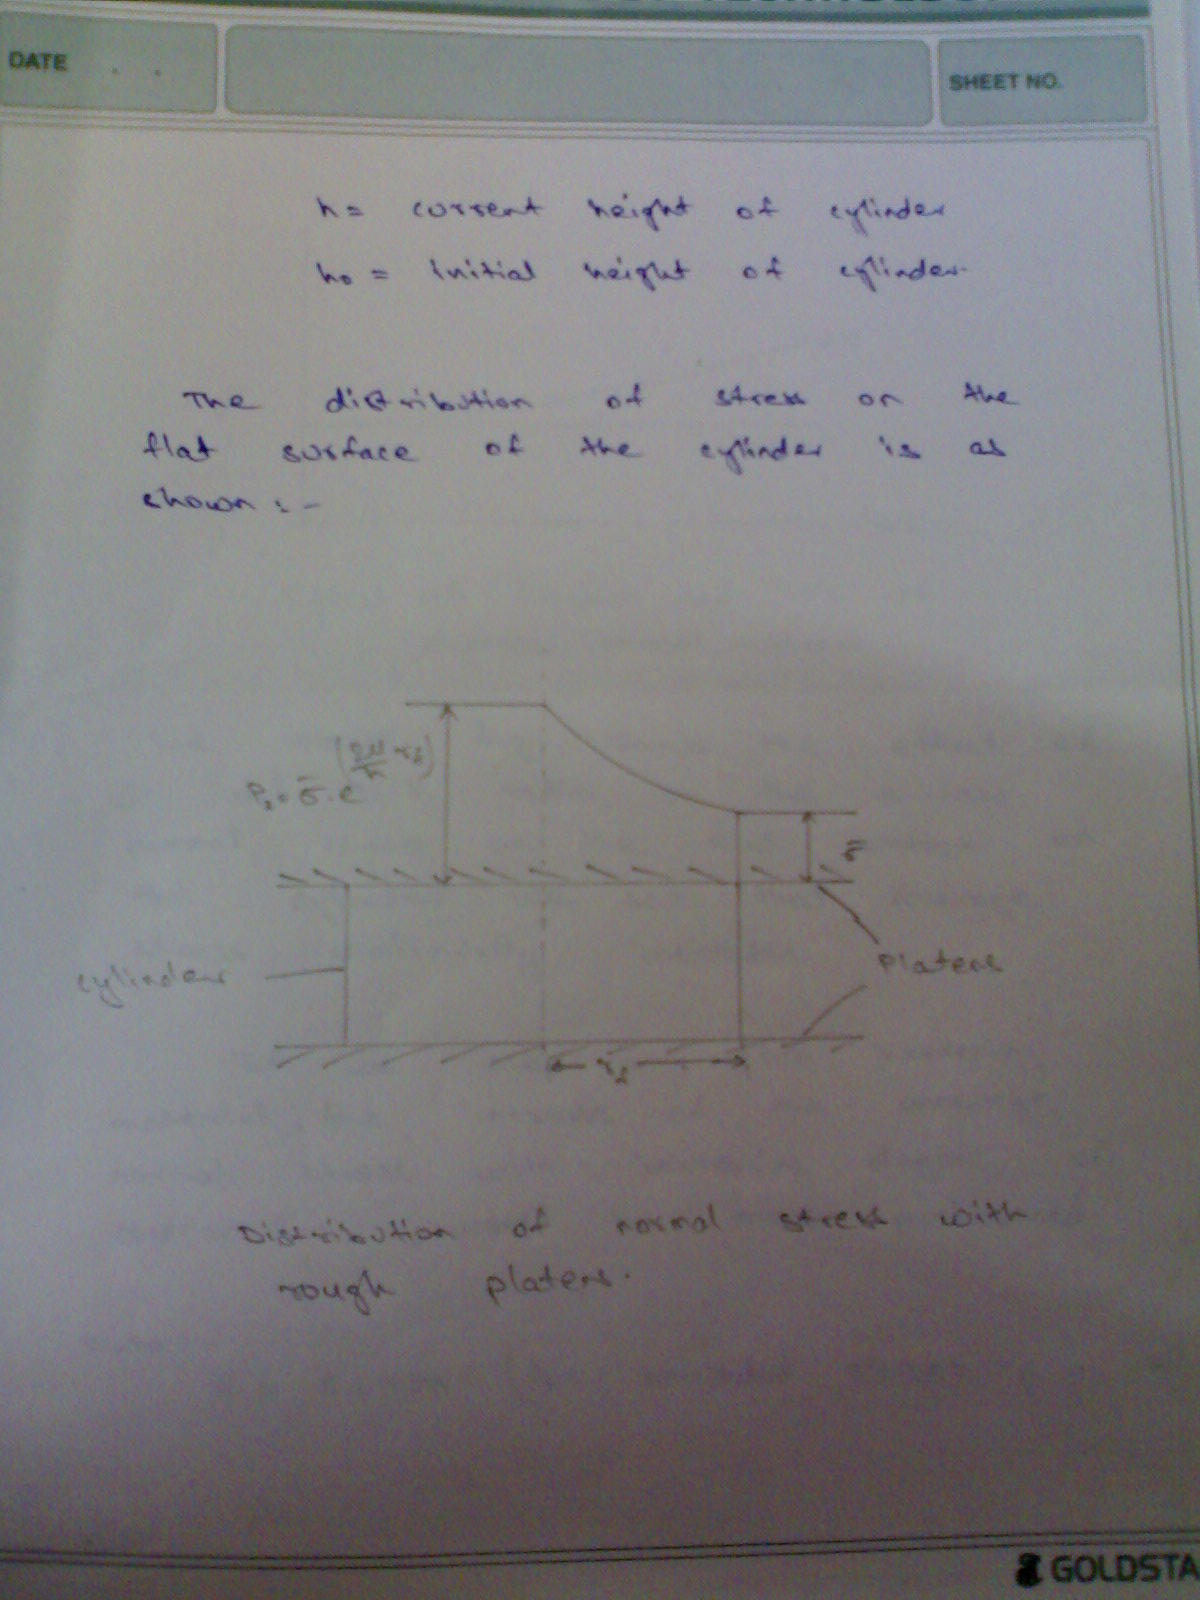 DATE . .
SHEET NO.
h = current height of cylinder
h₀ = initial height of cylinder.
The distribution of stress on the
flat surface of the cylinder is as
shown :-
σ̄
cylinder
Platens
Distribution of normal stress with
rough platens.
GOLDSTA